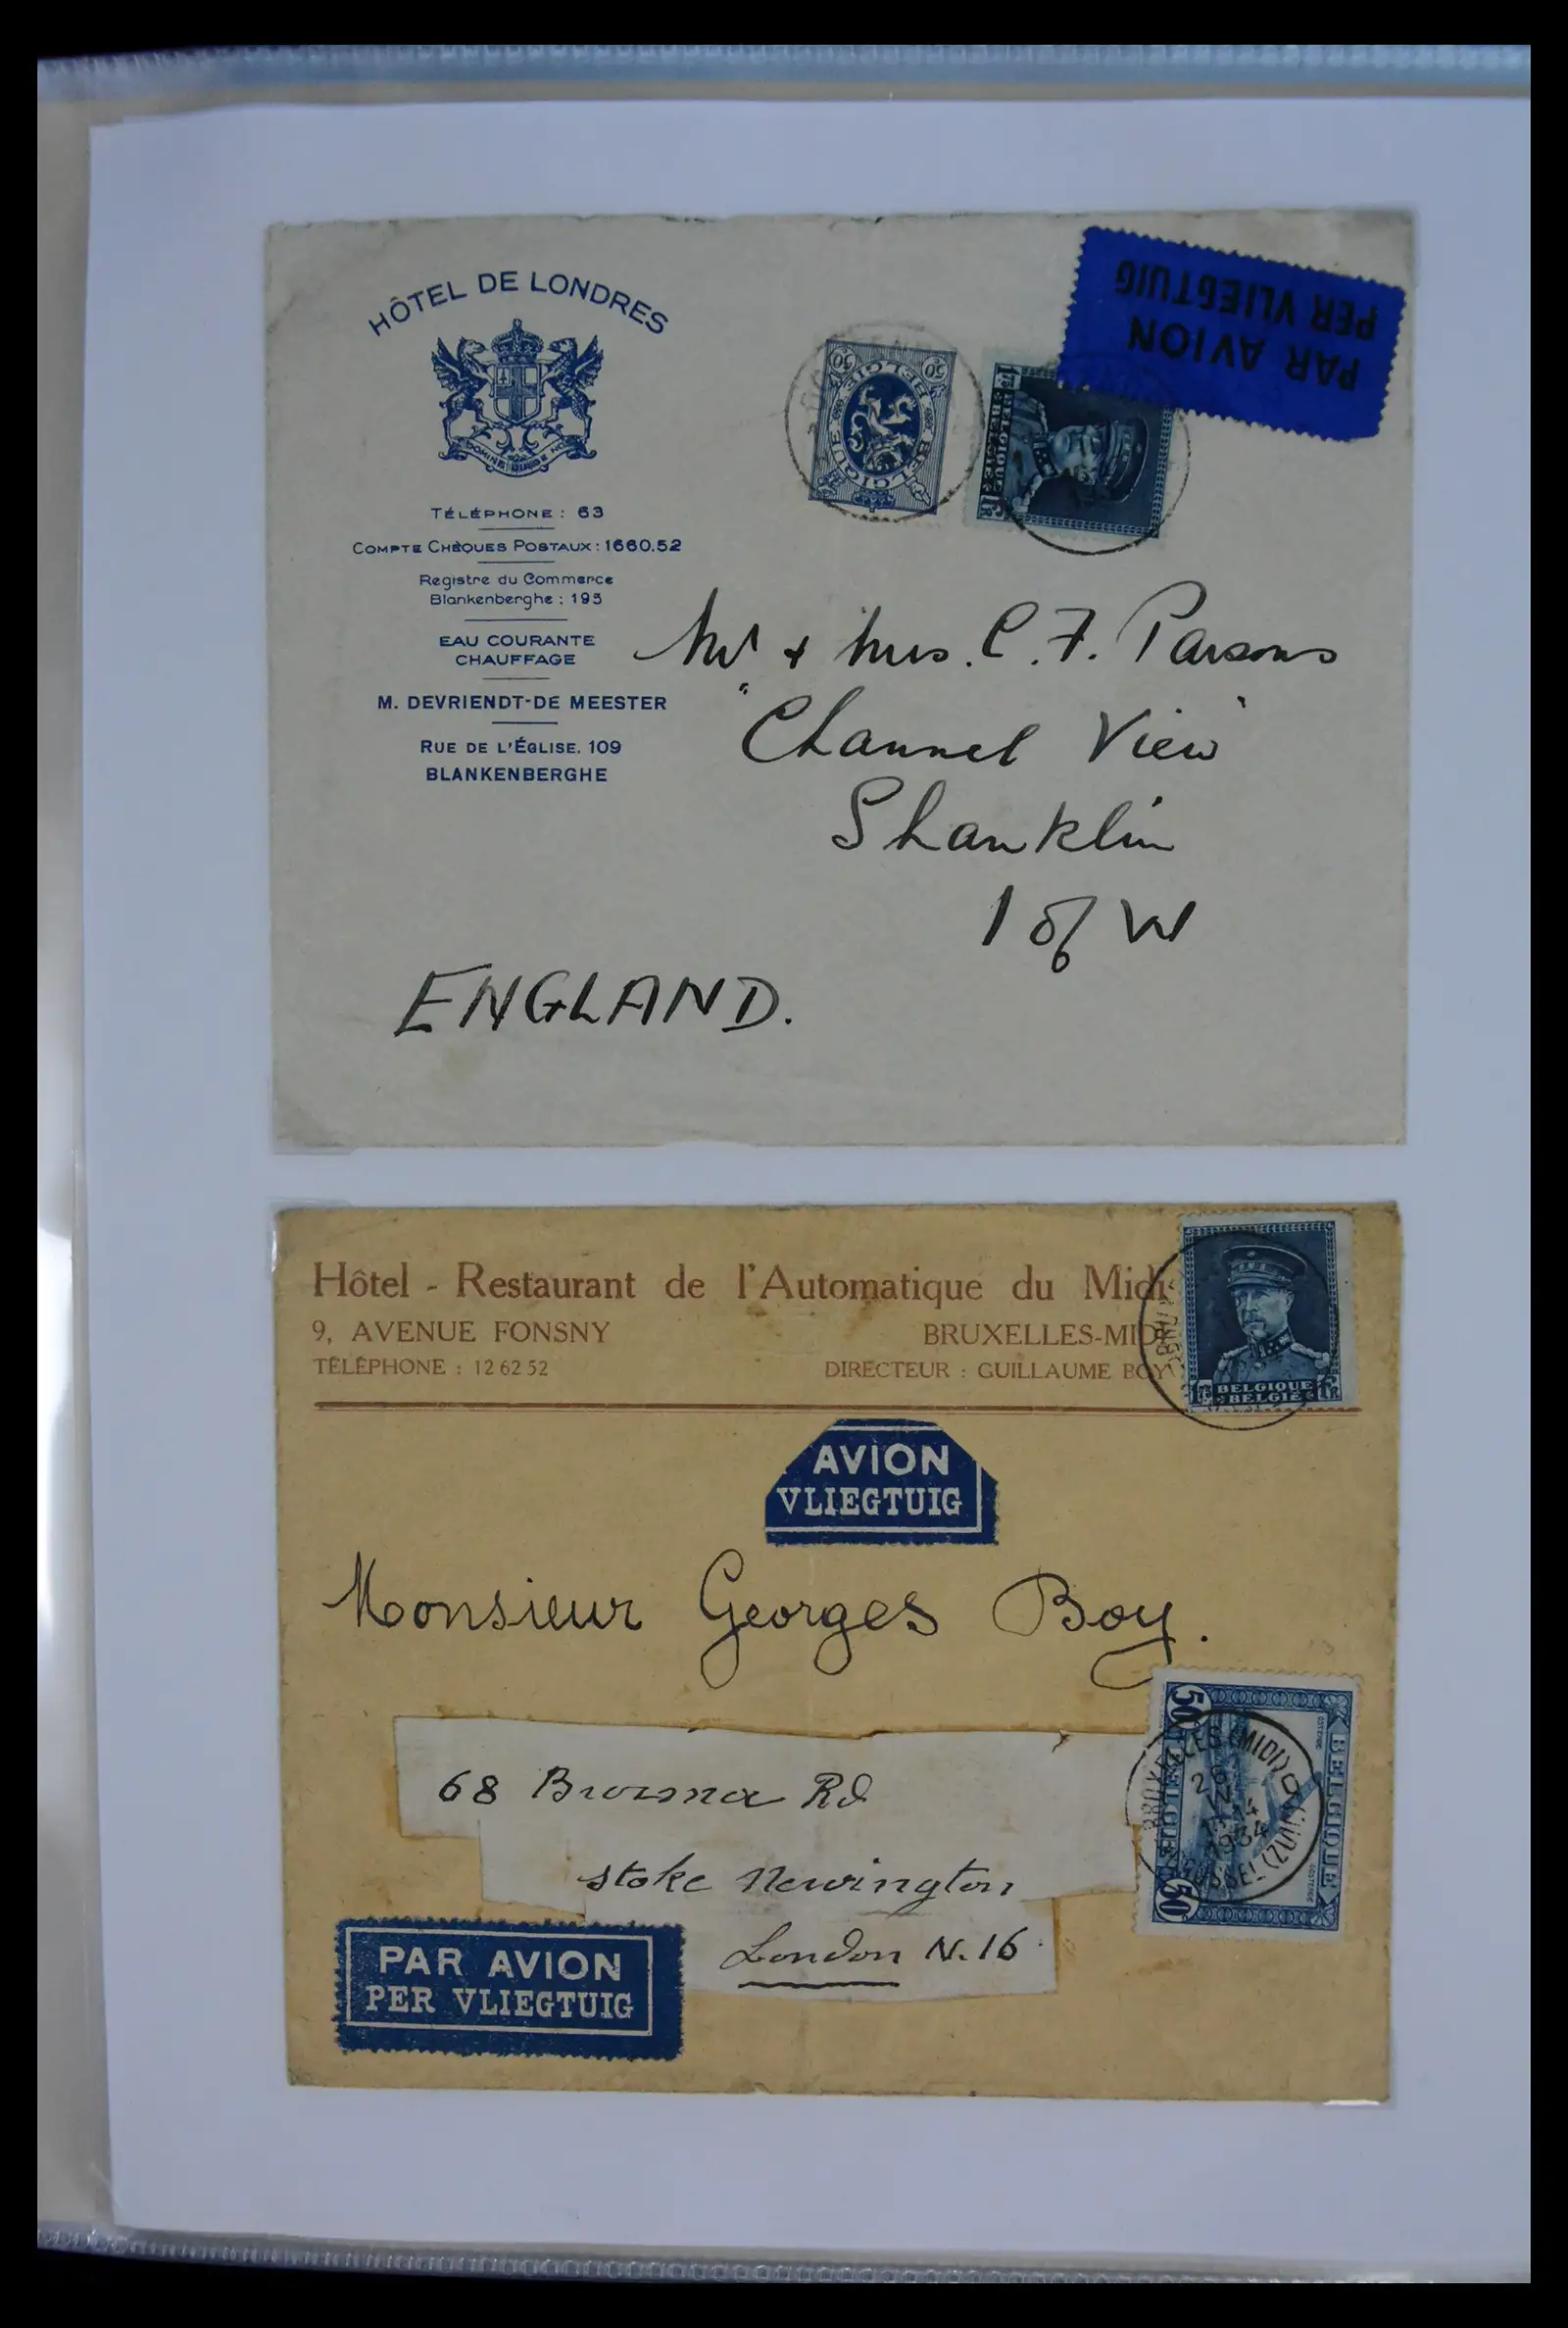 HÔTEL DE LONDRES
TÉLÉPHONE : 63
COMPTE CHÈQUES POSTAUX : 1660.52
Registre du Commerce
Blankenberghe : 195
EAU COURANTE
CHAUFFAGE
M. DEVRIENDT-DE MEESTER
RUE DE L'ÉGLISE. 109
BLANKENBERGHE
50 BELGIQUE BELGIË 50
BELGIQUE
PAR AVION
PER VLIEGTUIG
Mr + Mrs. C. F. Parsons
"Channel View"
Shanklin
I of W
ENGLAND.
Hôtel - Restaurant de l'Automatique du Midi
9, AVENUE FONSNY BRUXELLES-MIDI
TÉLÉPHONE : 12 62 52 DIRECTEUR : GUILLAUME BOY
BELGIQUE
BELGIË
AVION
VLIEGTUIG
Monsieur Georges Boy.
50 BELGIQUE 50
OOSTENDE
BRUXELLES (MIDI)
1934
68 Rd
Stoke Newington
London N.16
PAR AVION
PER VLIEGTUIG